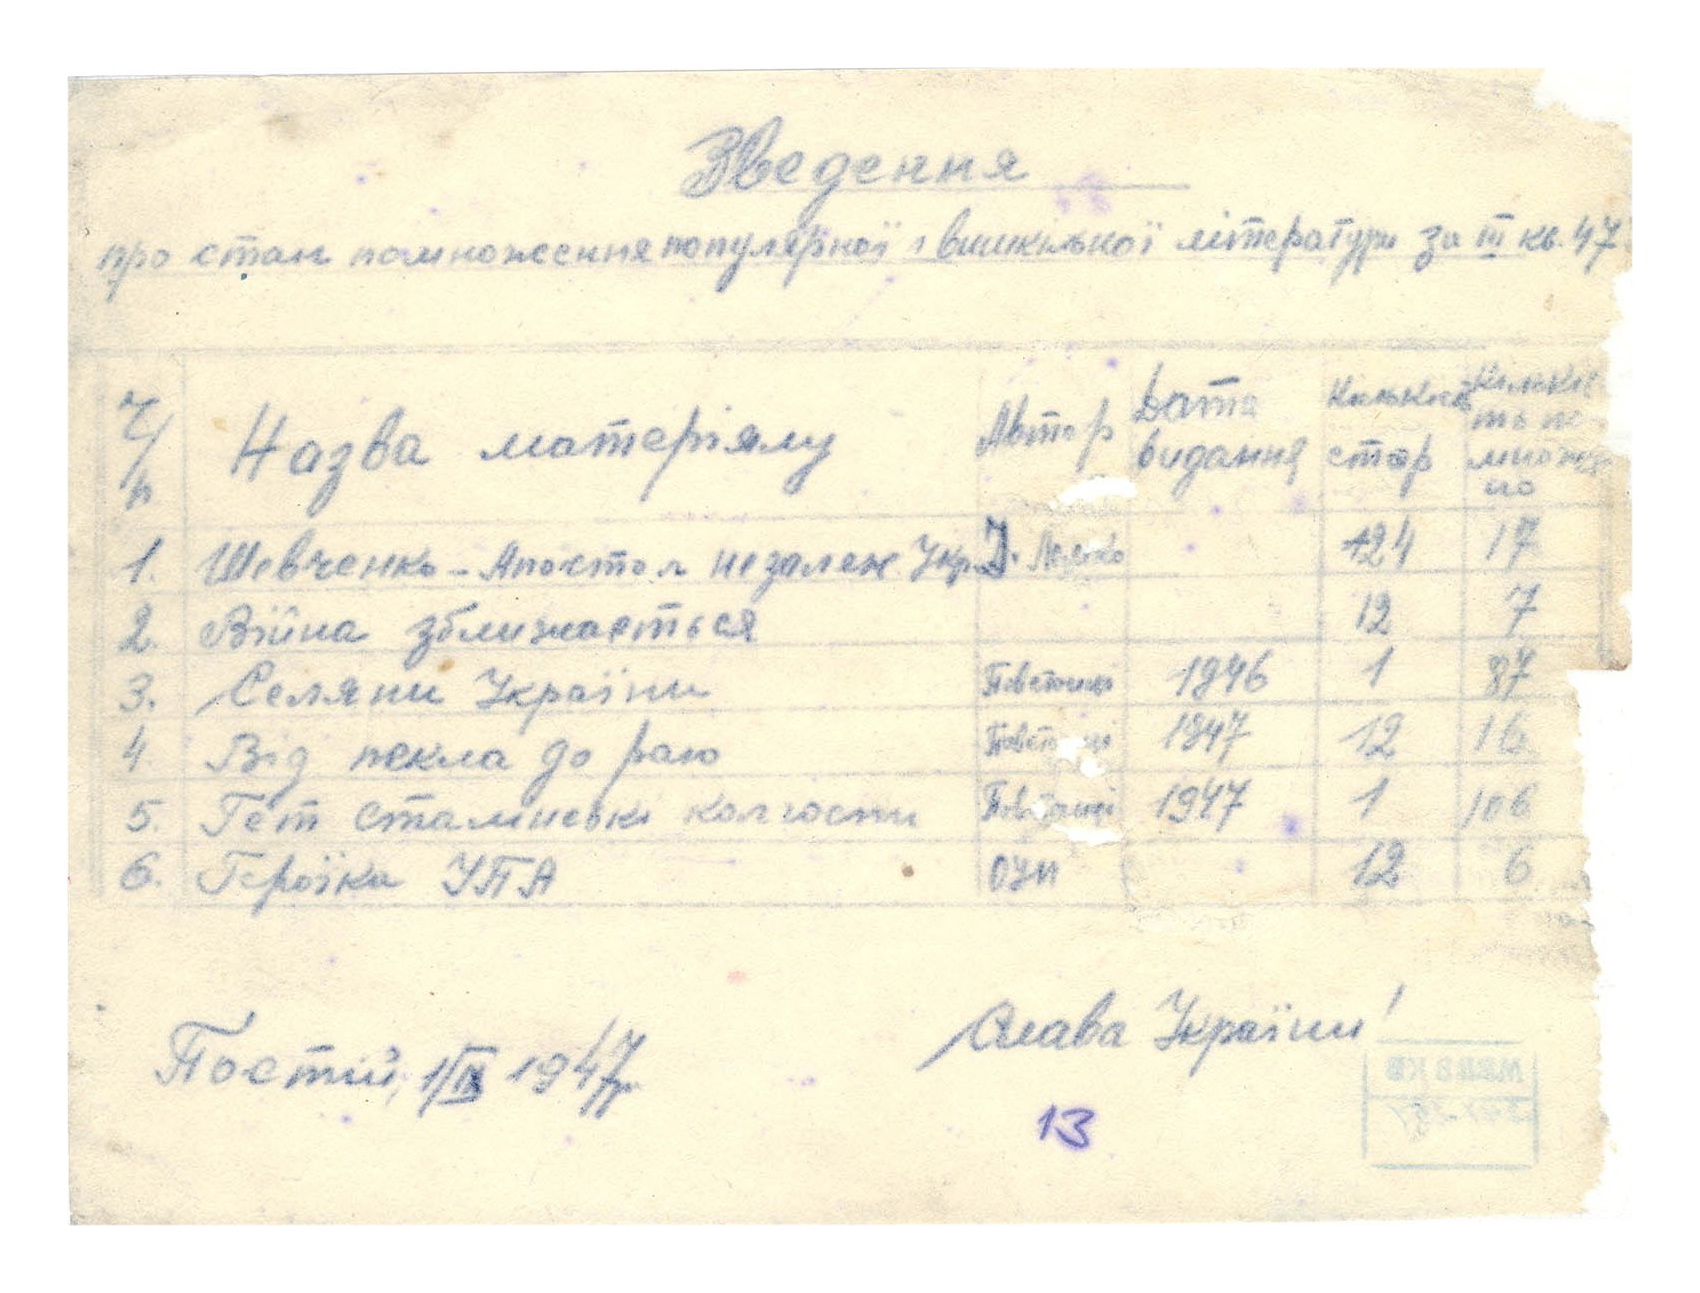 Зведення
про стан помноження популярної і вишкільної літератури за III кв. 47
Ч/п Назва матеріялу Автор Дата видання Кількість стор Кількість помножено
1. Шевченко – Апостол незалеж Укр. 24 17
2. Війна зближається 12 7
3. Селяни України Повстанці 1946 1 87
4. Від пекла до раю Повстанці 1947 12 16
5. Гет сталінські колгоспи Повстанці 1947 1 106
6. Героїка УПА ОУН 12 6
Слава Україні!
Постій, 1/IX 1947р.
13